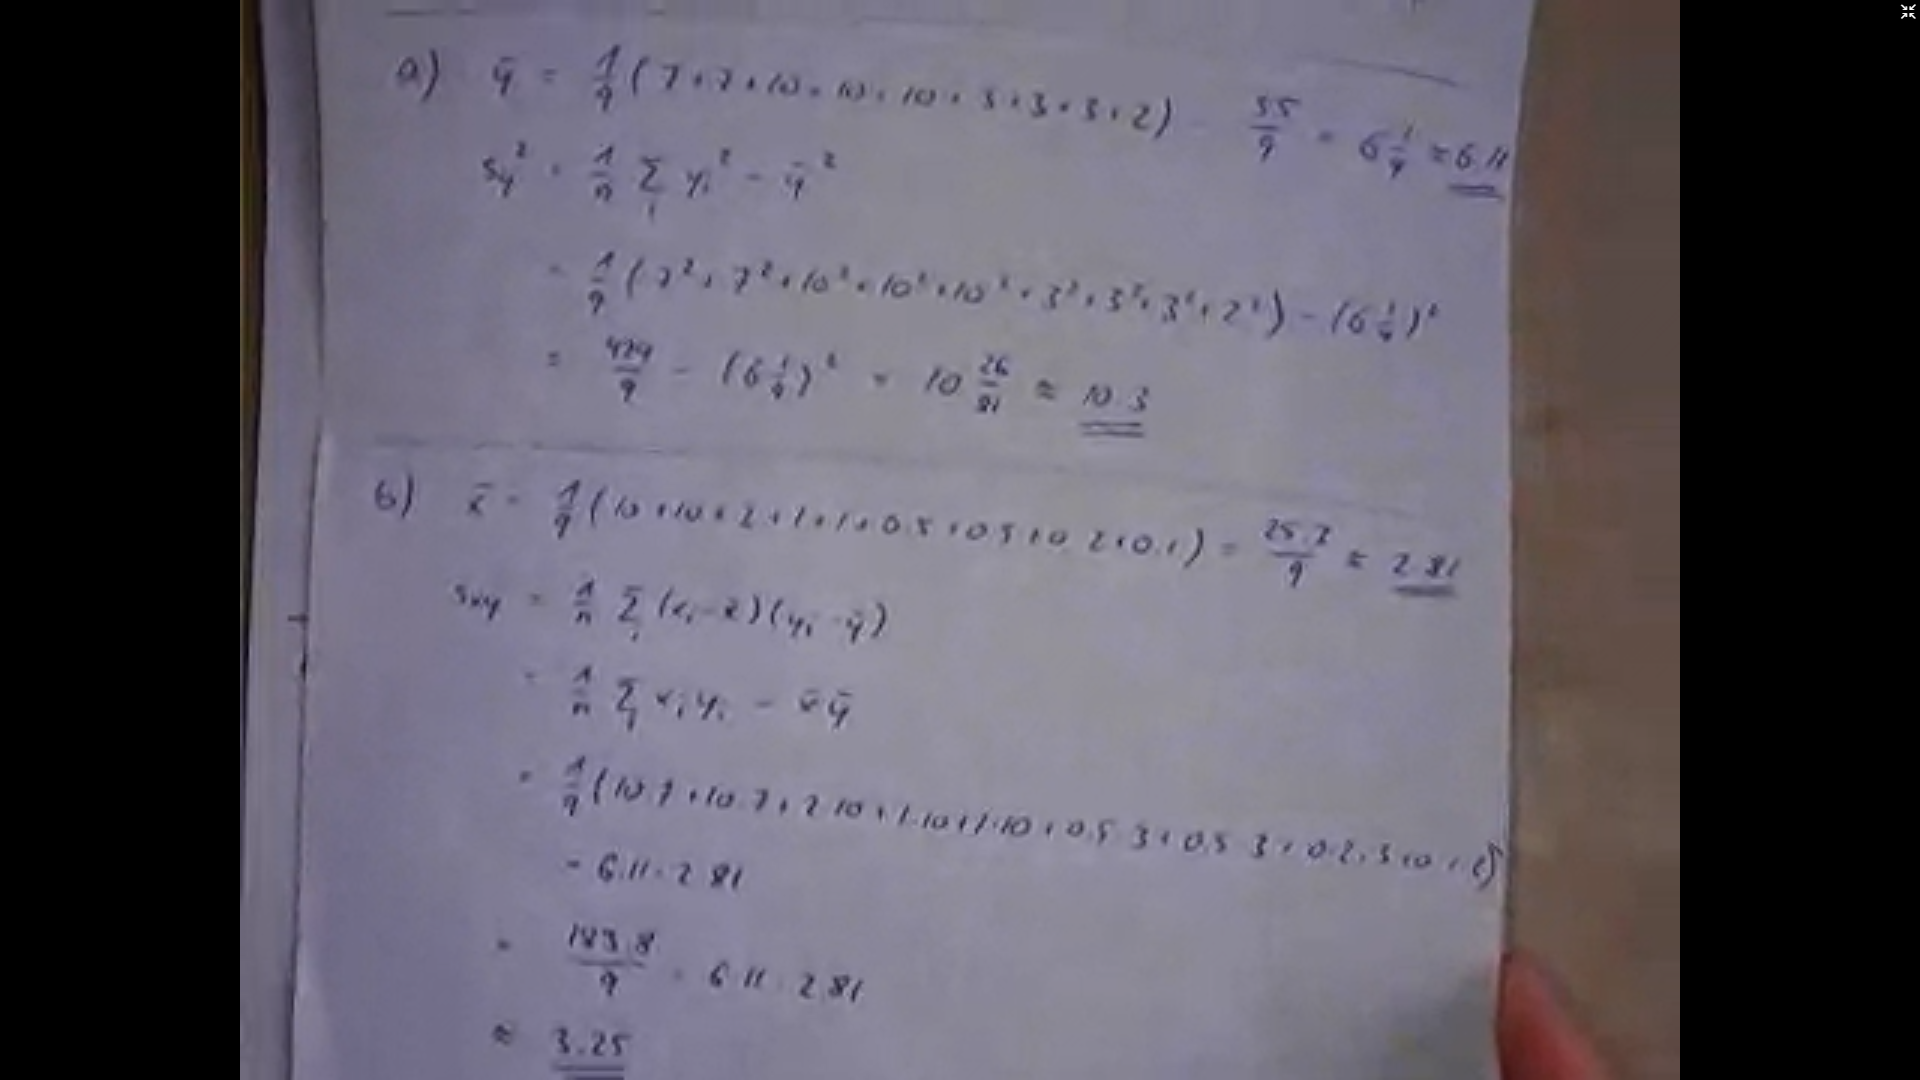 a) ȳ = 1/9 (7+7+10+10+10+3+3+3+2) = 55/9 = 6 1/9 ≈ 6.11
sy² = 1/n Σi yi² - ȳ²
= 1/9 (7²+7²+10²+10²+10²+3²+3²+3²+2²) - (6 1/9)²
= 429/9 - (6 1/9)² = 10 26/81 ≈ 10.3
b) x̄ = 1/9 (10+10+2+1+1+0.5+0.5+0.2+0.1) = 25.3/9 ≈ 2.81
sxy = 1/n Σi (xi-x̄)(yi-ȳ)
= 1/n Σi xiyi - x̄ȳ
= 1/9 (10·7+10·7+2·10+1·10+1·10+0.5·3+0.5·3+0.2·3+0.1·2)
- 6.11·2.81
= 183.8/9 - 6.11·2.81
≈ 3.25